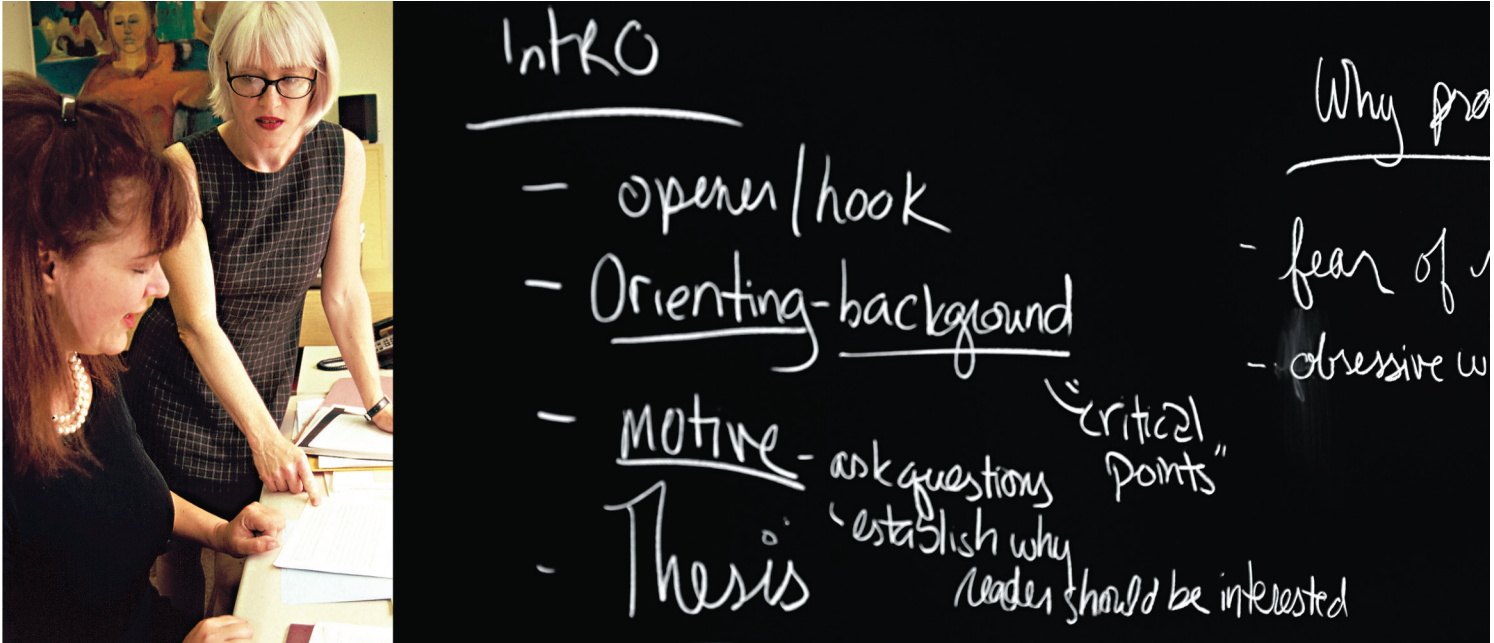 IntRO
- opener/hook
- Orienting-background
"critical
points"
- Motive - ask questions
- establish why
reader should be interested
- Thesis
Why
- fear of
- obsessive